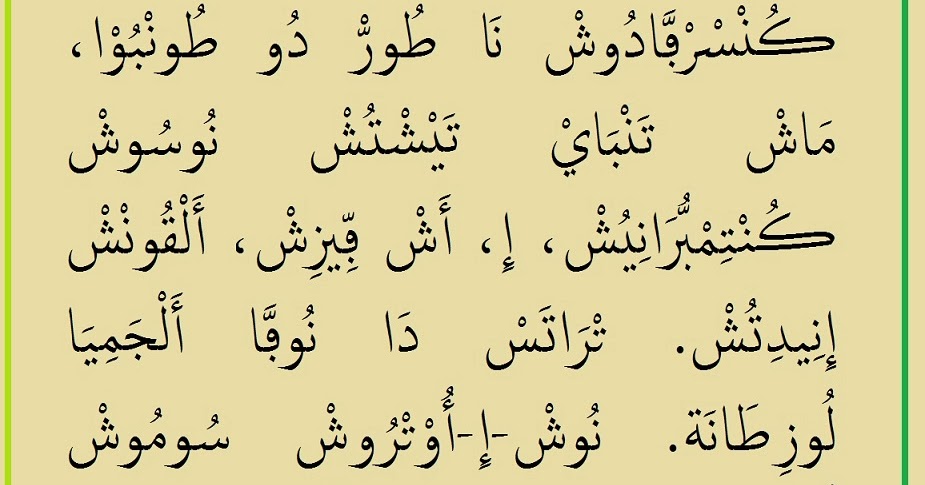 كُنْسْرْڢَّادُوشْ نَا طُورّْ دُو طُونْبُوْا،
مَاشْ تَنْبَايْ تَيْشْتُشْ نُوسُوشْ
كُنْتِمْبُّرَانِيُشْ، إِ، أَشْ ڢِّيزِشْ، أَلْقُونْشْ
إِنِيدِتُشْ. تْرَاتَسْ دَا نُوڢَّا أَلْجَمِيَا
لُوزِطَانَة. نُوش-إِ-أُوْتْرُوشْ سُومُوشْ